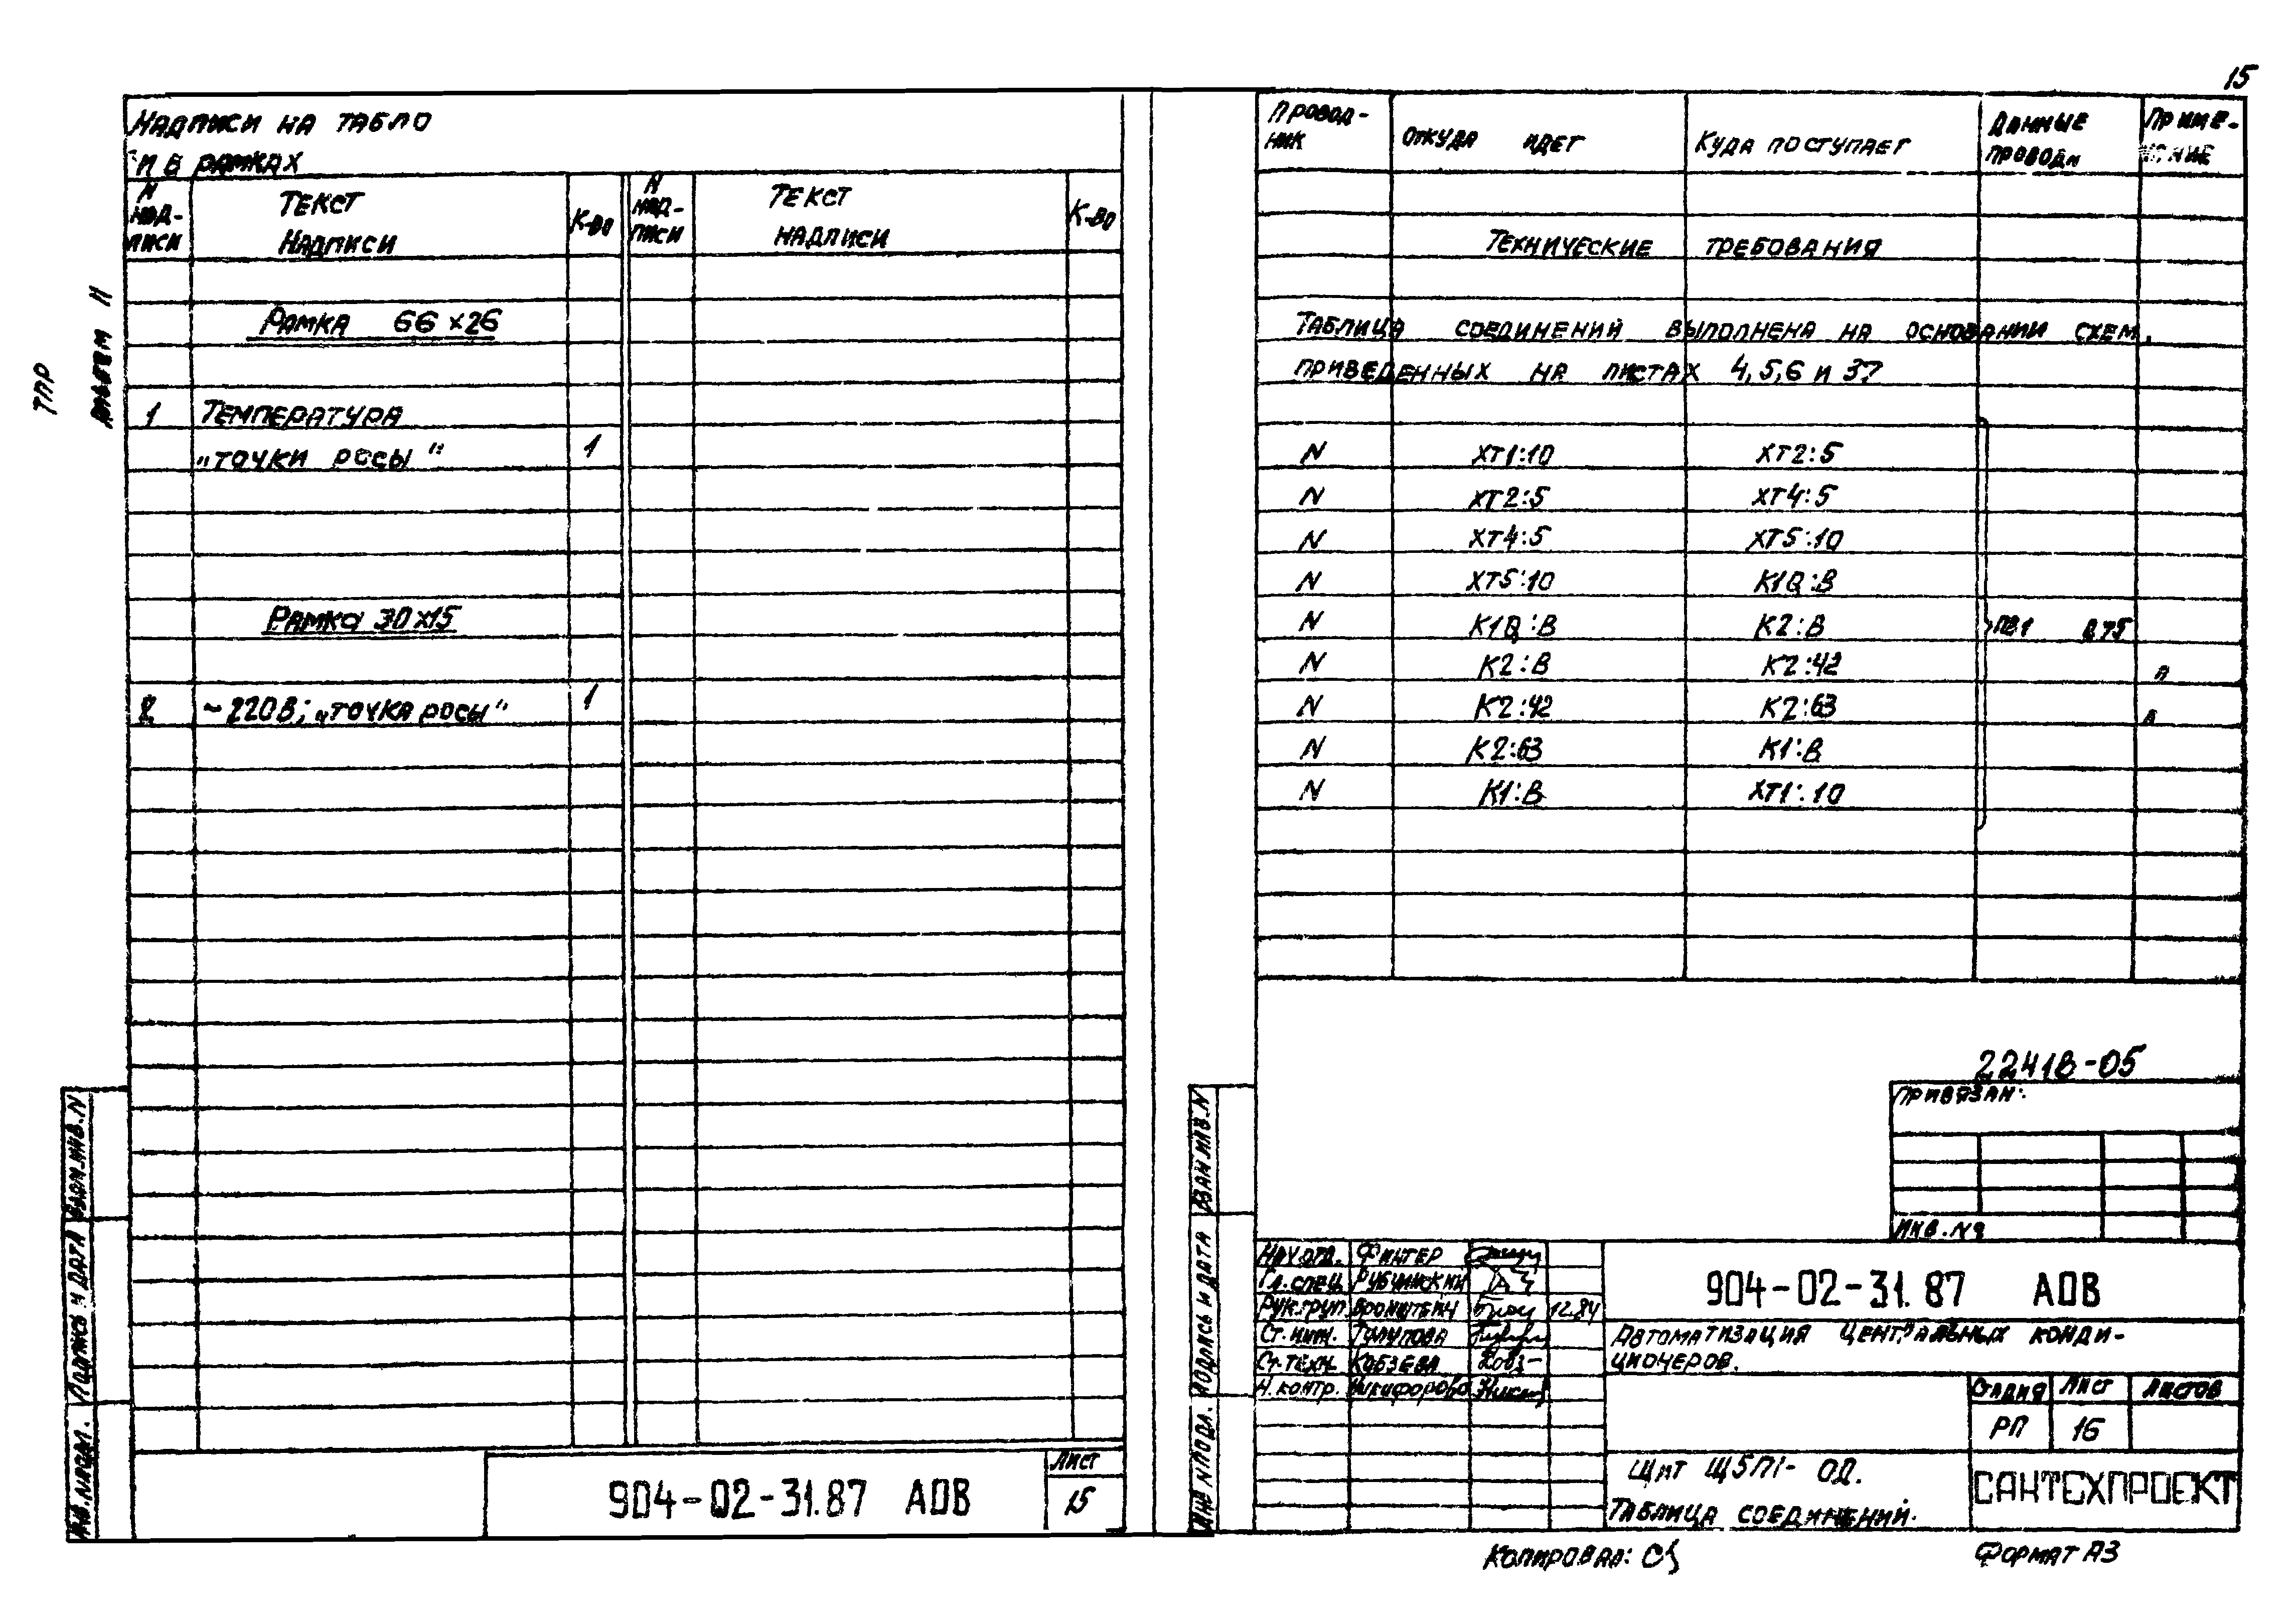 15
ТПР
Альбом II
Надписи на табло
и в рамках
N надписи Текст надписи К-во N надписи Текст надписи К-во
Рамка 66×26
1 Температура
„точки росы" 1
Рамка 30×15
2 ~220В; „точка росы" 1
Взам.инв.N
Подпись и дата
Инв.Nподл.
904-02-31.87 АОВ
Лист
15
Провод-
ник Откуда идет Куда поступает Данные
провода Приме-
чание
Технические требования
Таблица соединений выполнена на основании схем,
приведенных на листах 4,5,6 и 37
N ХТ1:10 ХТ2:5
N ХТ2:5 ХТ4:5
N ХТ4:5 ХТ5:10
N ХТ5:10 К1Q:В
N К1Q:В К2:В ПВ1 0,75
N К2:В К2:42 п
N К2:42 К2:63 п
N К2:63 К1:В
N К1:В ХТ1:10
22418-05
Привязан:
Инв.№
Взам.инв.N
Подпись и дата
Инв.Nподл.
Нач.отд. Фингер
Гл.спец. Рубчинский
Рук.груп. Бронштейн 12.84
Ст.инж. Толупова
Ст.техн. Кобзева
Н.контр. Никифорова
904-02-31.87 АОВ
Автоматизация центральных конди-
ционеров.
Стадия Лист Листов
РП 16
Щит Щ5П1- ОД.
Таблица соединений.
САНТЕХПРОЕКТ
Копировал:
Формат А3